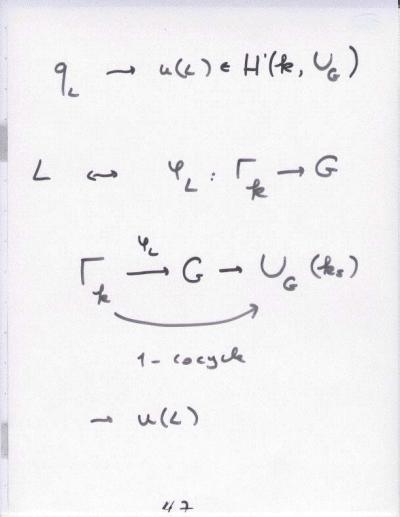 q_L → u(L) ∈ H¹(k, U_G)
L ↔ φ_L : Γ_k → G
Γ_k —φ_L→ G → U_G (k_s)
1-cocycle
→ u(L)
47